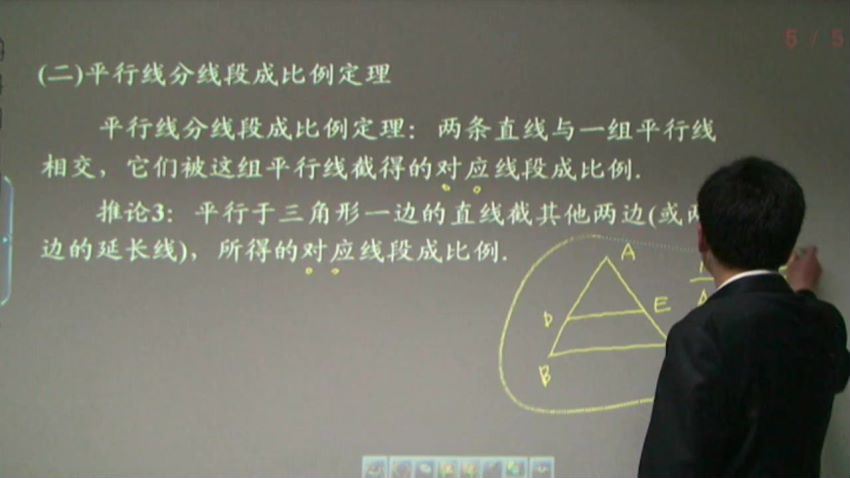 5 / 5
(二)平行线分线段成比例定理
平行线分线段成比例定理：两条直线与一组平行线
相交，它们被这组平行线截得的对应线段成比例.
推论3：平行于三角形一边的直线截其他两边(或两
边的延长线)，所得的对应线段成比例.
A
D
E
B
A